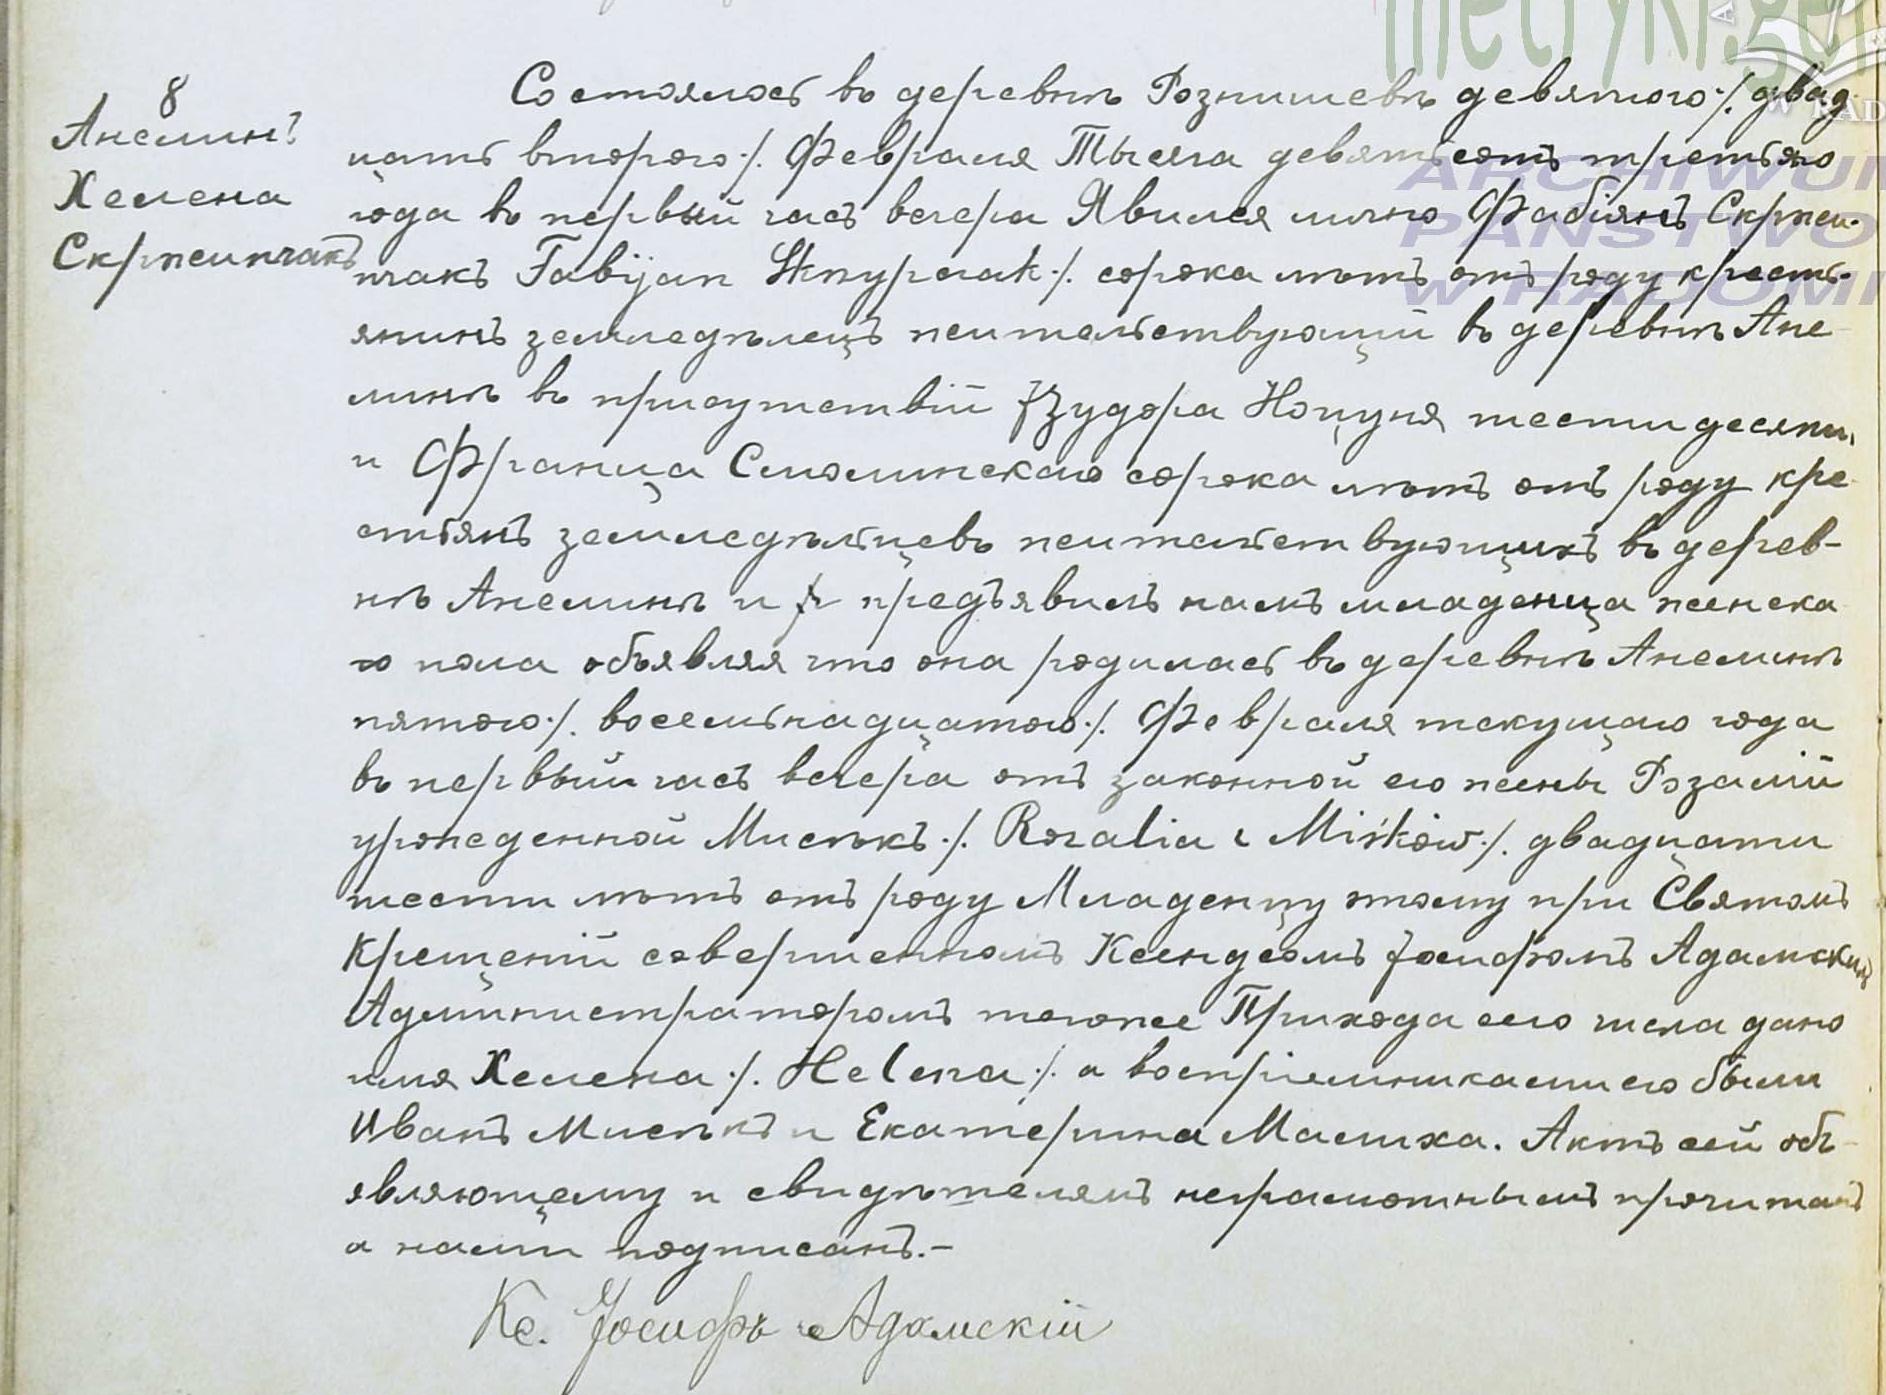 8
Анелинъ
Хелена
Скржипчакъ
Состоялось въ деревнѣ Рознишевѣ девятого ./. двад-
цать второго ./. Февраля Тысяча девятьсотъ третьяго
года въ первый часъ вечера Явился лично Фабіянъ Скржи-
пчакъ Fabijan Skrzypczak ./. сорока лѣтъ отъ роду кресть-
янинъ земледѣлецъ жительствующій въ деревнѣ Ане-
линѣ въ присутствіи Изудора Ноцуня шестидесяти
и Франца Смолинскаго сорока лѣтъ отъ роду кре-
стьянъ земледѣльцевъ жительствующихъ въ дерев-
нѣ Анелинѣ и предъявилъ намъ младенца женска
го пола объявляя что она родилась въ деревнѣ Анелинѣ
пятого ./. восемьнадцатого ./. Февраля текущаго года
въ первый часъ вечера отъ законной его жены Розаліи
урожеденной Мисѣкъ ./. Rozalia z Miśków ./. двадцати
шести лѣтъ отъ роду Младенцу этому при Святомъ
Крещеніи совершенномъ Ксендзомъ Іосифомъ Адамскимъ
Администраторомъ тогоже Прихода сего числа дано
имя Хелена ./. Helena ./. а воспріемниками его были
Иванъ Мисѣкъ и Екатерина Малиха. Актъ сей объ-
являющему и свидѣтелямъ неграмотнымъ прочитанъ
а нами подписанъ.-
Кс. Іосифъ Адамскій
metryki.gen
ARCHIWUM
PAŃSTWO
W RADOMI